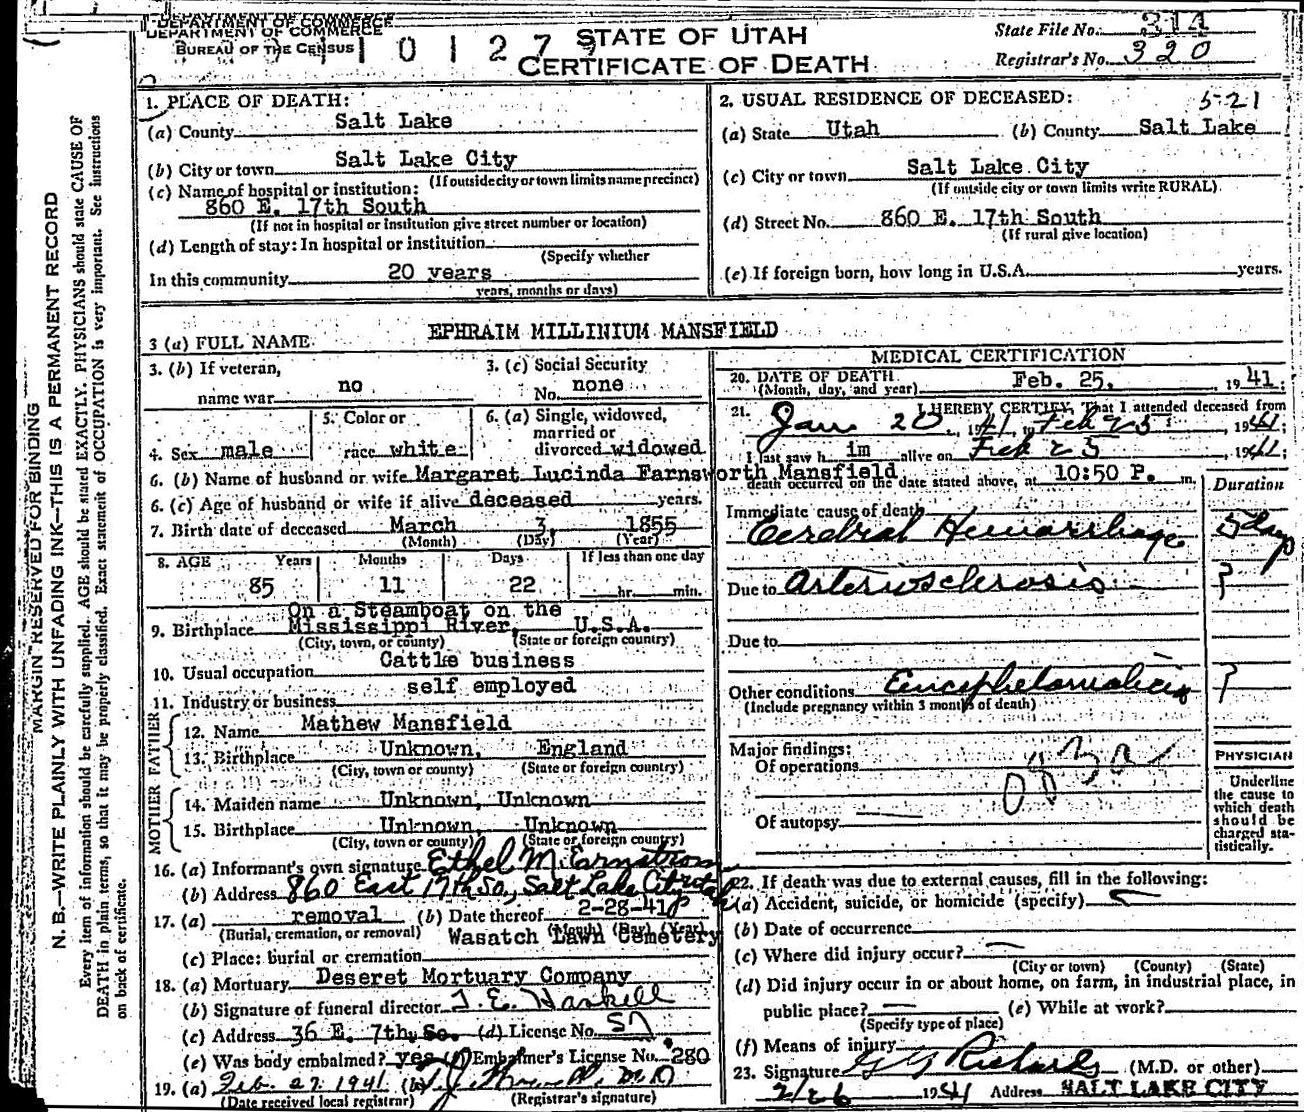 DEPARTMENT OF COMMERCE
DEPARTMENT OF COMMERCE
BUREAU OF THE CENSUS
1 0 1 2 7
STATE OF UTAH
CERTIFICATE OF DEATH
State File No. 314
Registrar's No. 320
MARGIN RESERVED FOR BINDING
N. B.—WRITE PLAINLY WITH UNFADING INK—THIS IS A PERMANENT RECORD
Every item of information should be carefully supplied. AGE should be stated EXACTLY. PHYSICIANS should state CAUSE OF
DEATH in plain terms, so that it may be properly classified. Exact statement of OCCUPATION is very important. See instructions
on back of certificate.
1. PLACE OF DEATH:
(a) County Salt Lake
(b) City or town Salt Lake City
(If outside city or town limits name precinct)
(c) Name of hospital or institution:
860 E. 17th South
(If not in hospital or institution give street number or location)
(d) Length of stay: In hospital or institution
(Specify whether
In this community 20 years
years, months or days)
2. USUAL RESIDENCE OF DECEASED: 521
(a) State Utah (b) County Salt Lake
(c) City or town Salt Lake City
(If outside city or town limits write RURAL)
(d) Street No. 860 E. 17th South
(If rural give location)
(e) If foreign born, how long in U.S.A. years.
3 (a) FULL NAME EPHRAIM MILLINIUM MANSFIELD
3. (b) If veteran,
name war no
3. (c) Social Security
No. none
4. Sex male
5. Color or
race white
6. (a) Single, widowed,
married or
divorced widowed
6. (b) Name of husband or wife Margaret Lucinda Farnsworth Mansfield
6. (c) Age of husband or wife if alive deceased years.
7. Birth date of deceased March 3, 1855
(Month) (Day) (Year)
8. AGE Years Months Days If less than one day
85 11 22 hr. min.
On a Steamboat on the
9. Birthplace Mississippi River, U.S.A.
(City, town, or county) (State or foreign country)
10. Usual occupation Cattle business
11. Industry or business self employed
FATHER
12. Name Mathew Mansfield
13. Birthplace Unknown, England
(City, town or county) (State or foreign country)
MOTHER
14. Maiden name Unknown, Unknown
15. Birthplace Unknown, Unknown
(City, town or county) (State or foreign country)
16. (a) Informant's own signature Ethel M. Earnstrom
(b) Address 860 East 17th So, Salt Lake City Utah
17. (a) removal (b) Date thereof 2-28-41
(Burial, cremation, or removal) (Month) (Day) (Year)
(c) Place: burial or cremation Wasatch Lawn Cemetery
18. (a) Mortuary Deseret Mortuary Company
(b) Signature of funeral director E. Haskell
(c) Address 36 E. 7th So. (d) License No. 57
(e) Was body embalmed? yes (f) Embalmer's License No. 280
19. (a) Feb. 27. 1941 (b) M D
(Date received local registrar) (Registrar's signature)
MEDICAL CERTIFICATION
20. DATE OF DEATH
(Month, day, and year) Feb. 25, 1941;
21. I HEREBY CERTIFY, That I attended deceased from
Jan 20, 1941, to Feb 25, 1941;
I last saw h im alive on Feb 25, 1941;
death occurred on the date stated above, at 10:50 P. m.
Duration
Immediate cause of death
Cerebral Hemorrhage 5 days
Due to Arteriosclerosis ?
Due to
Other conditions Encephalomalacia ?
(Include pregnancy within 3 months of death)
Major findings:
Of operations
Of autopsy
PHYSICIAN
Underline
the cause to
which death
should be
charged sta-
tistically.
22. If death was due to external causes, fill in the following:
(a) Accident, suicide, or homicide (specify)
(b) Date of occurrence
(c) Where did injury occur?
(City or town) (County) (State)
(d) Did injury occur in or about home, on farm, in industrial place, in
public place? (e) While at work?
(Specify type of place)
(f) Means of injury
23. Signature G G Richards (M.D. or other)
2/26 1941 Address SALT LAKE CITY